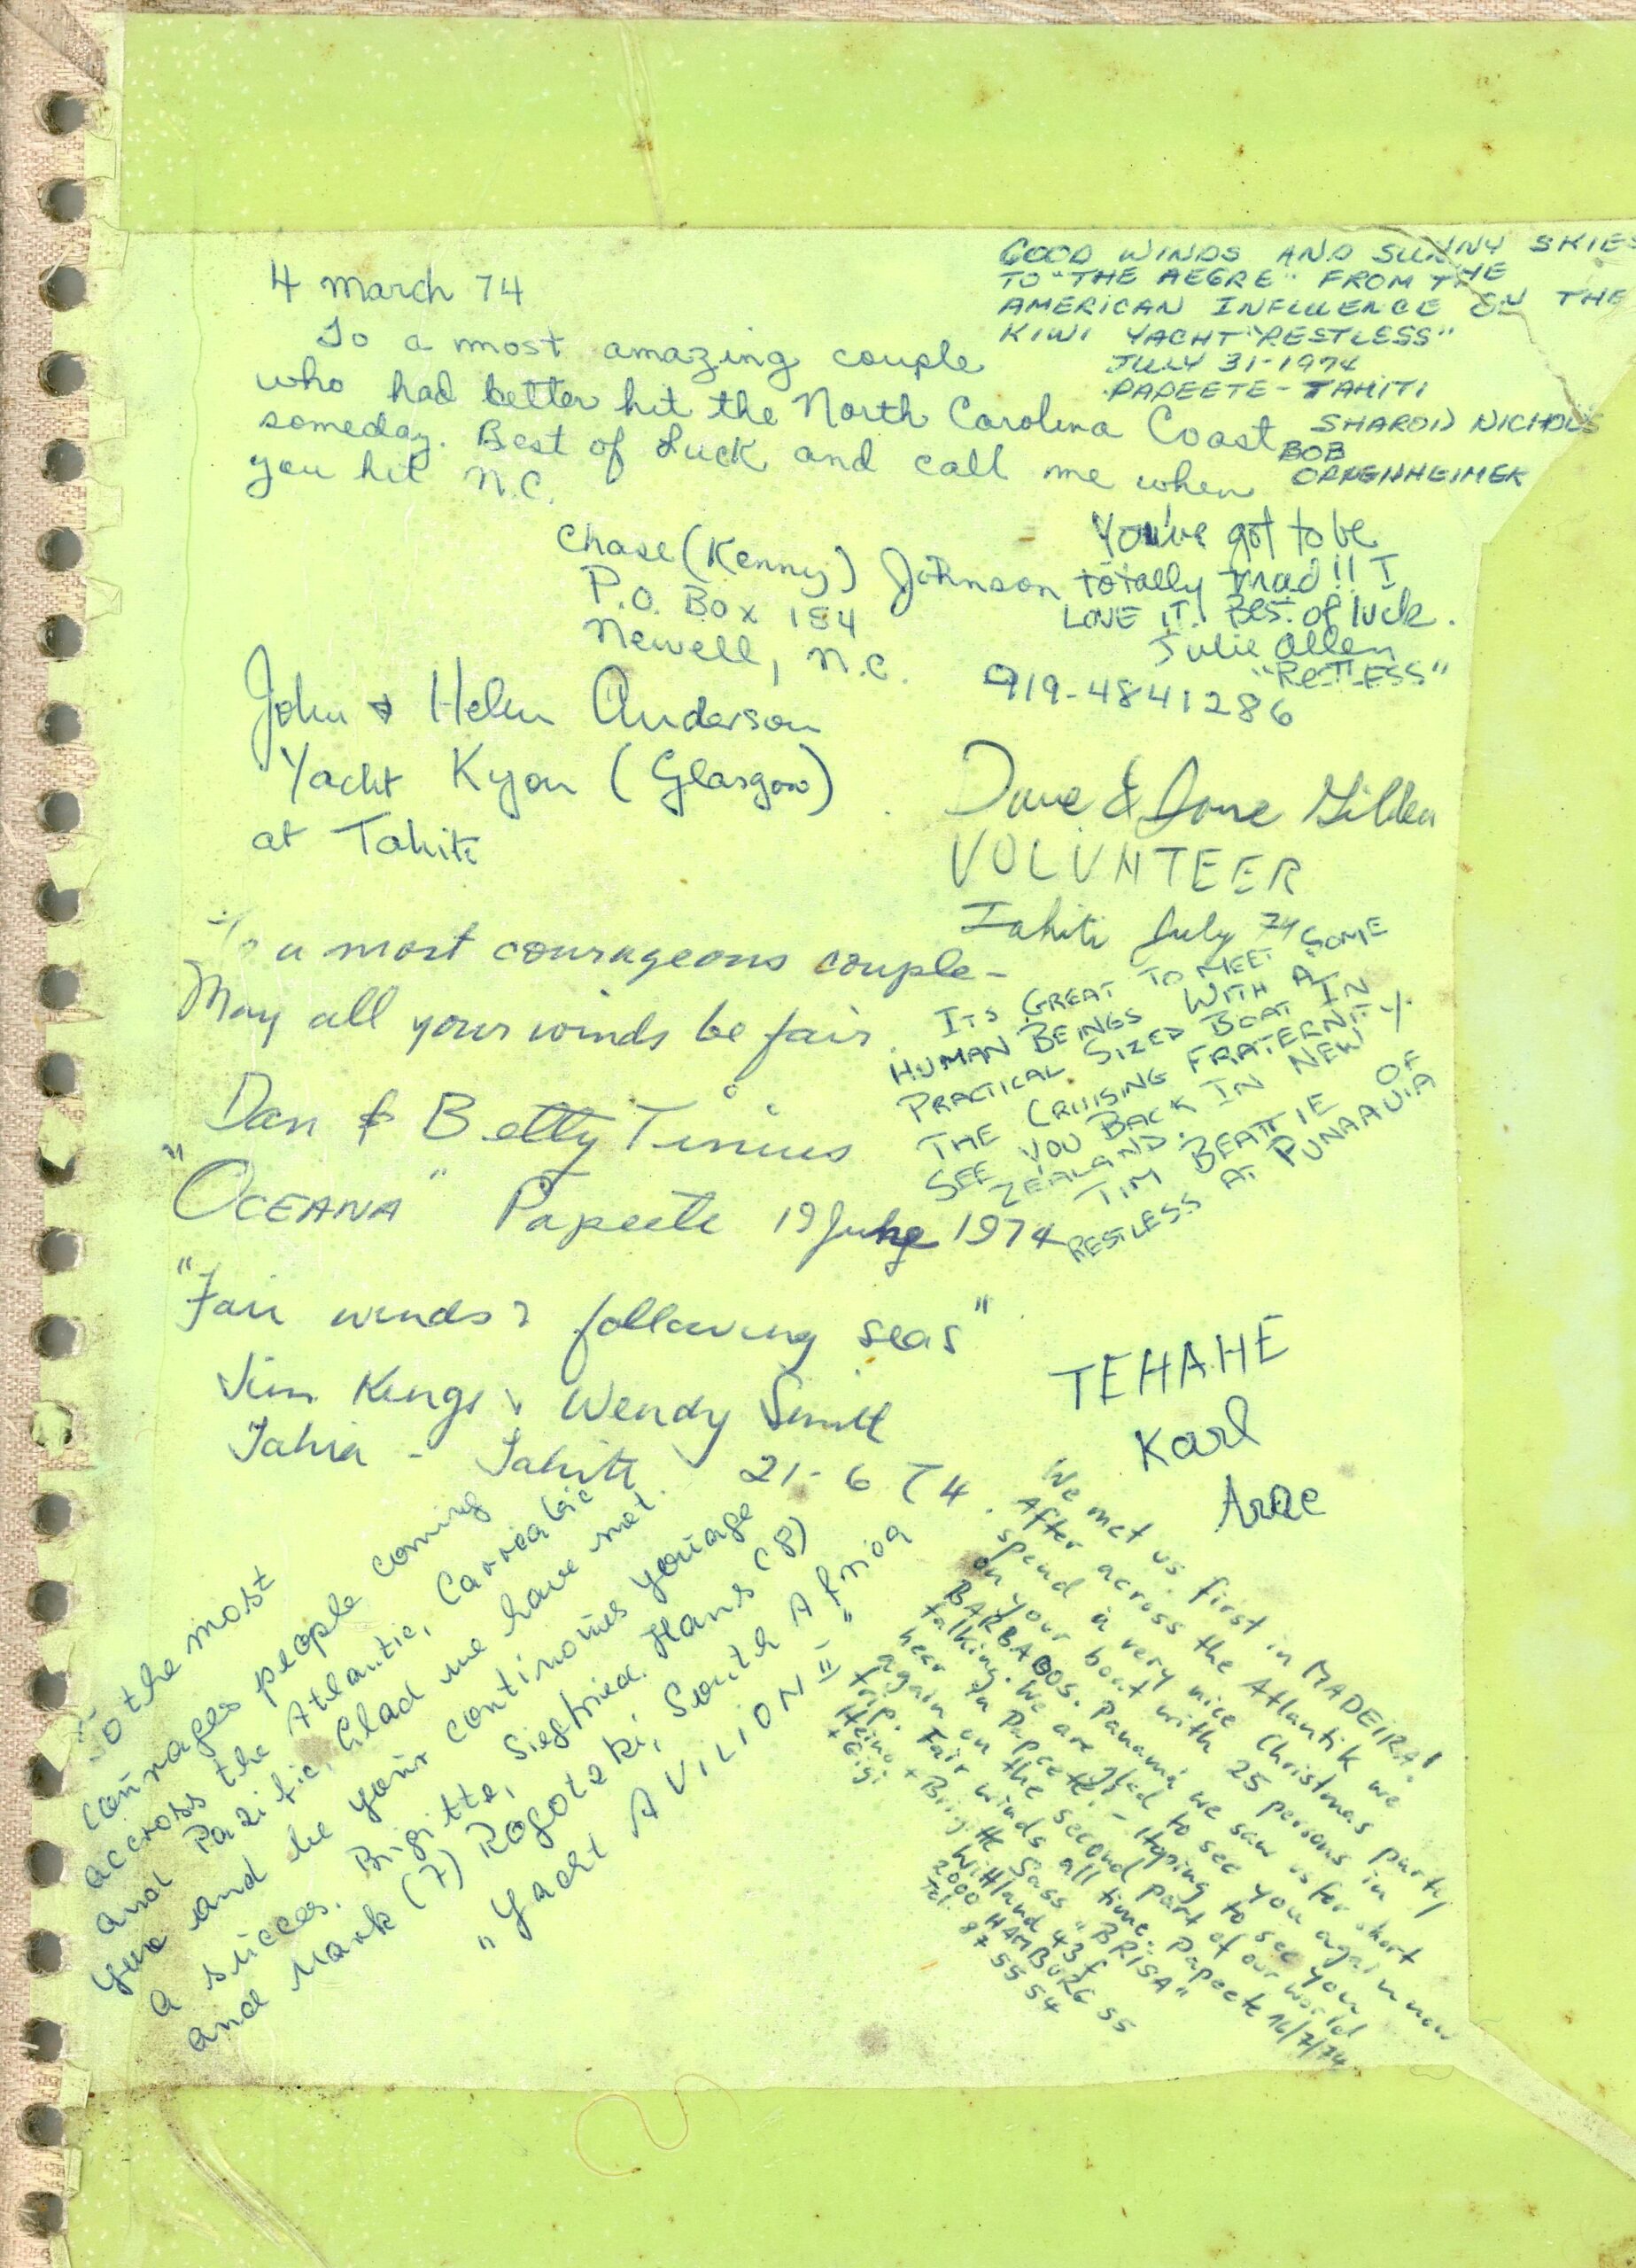 4 March 74
To a most amazing couple
who had better hit the North Carolina Coast
someday. Best of Luck and call me when
you hit N.C.
Chase (Kenny) Johnson
P.O. Box 184
Newell, N.C.
919-4841286
GOOD WINDS AND SUNNY SKIES
TO "THE AEGRE" FROM THE
AMERICAN INFLUENCE ON THE
KIWI YACHT "RESTLESS"
JULY 31-1974
PAPEETE - TAHITI
SHARON NICHOLS
BOB
OPPENHEIMER
You've got to be
totally mad!! I
LOVE IT! Best of luck.
Julie Allen
"RESTLESS"
John & Helen Anderson
Yacht Kyon (Glasgow)
at Tahiti
Dave &
VOLUNTEER
Tahiti July 74
To a most courageous couple -
May all your winds be fair.
Dan & Betty Tinius
"OCEANA" Papeete 19 June 1974
ITS GREAT TO MEET SOME
HUMAN BEINGS WITH A
PRACTICAL SIZED BOAT IN
THE CRUISING FRATERNITY.
SEE YOU BACK IN NEW
ZEALAND.
TIM BEATTIE OF
RESTLESS AT PUNAAUIA
"Fair winds & following seas"
Jim Kings & Wendy Smith
Tahia - Tahiti 21-6 74.
TEHAHE
Karl
To the most
courages people coming
accross the Atlantic, Carrealic
and Pazific, Glad we have met
you and be your continoues youage
a succes. Brigitte, Siegfried. Hans (8)
and Mark (7) Rogotzki, South Africa
"Yacht AVILION II"
We met us first in MADEIRA!
After across the Atlantik we
spend a very nice Christmas party
on your boat with 25 persons in
BARBADOS. Panama we saw us for short
talking. We are glad to see you again now
hear in Papeete. - Hoping to see you
again on the second part of our world
trip. Fair winds all time. Papeete 16/7/74
Heino + Brigitte Sass "BRISA"
+ Gigi Wittland 43 f
2000 HAMBURG 55
Tel. 875554